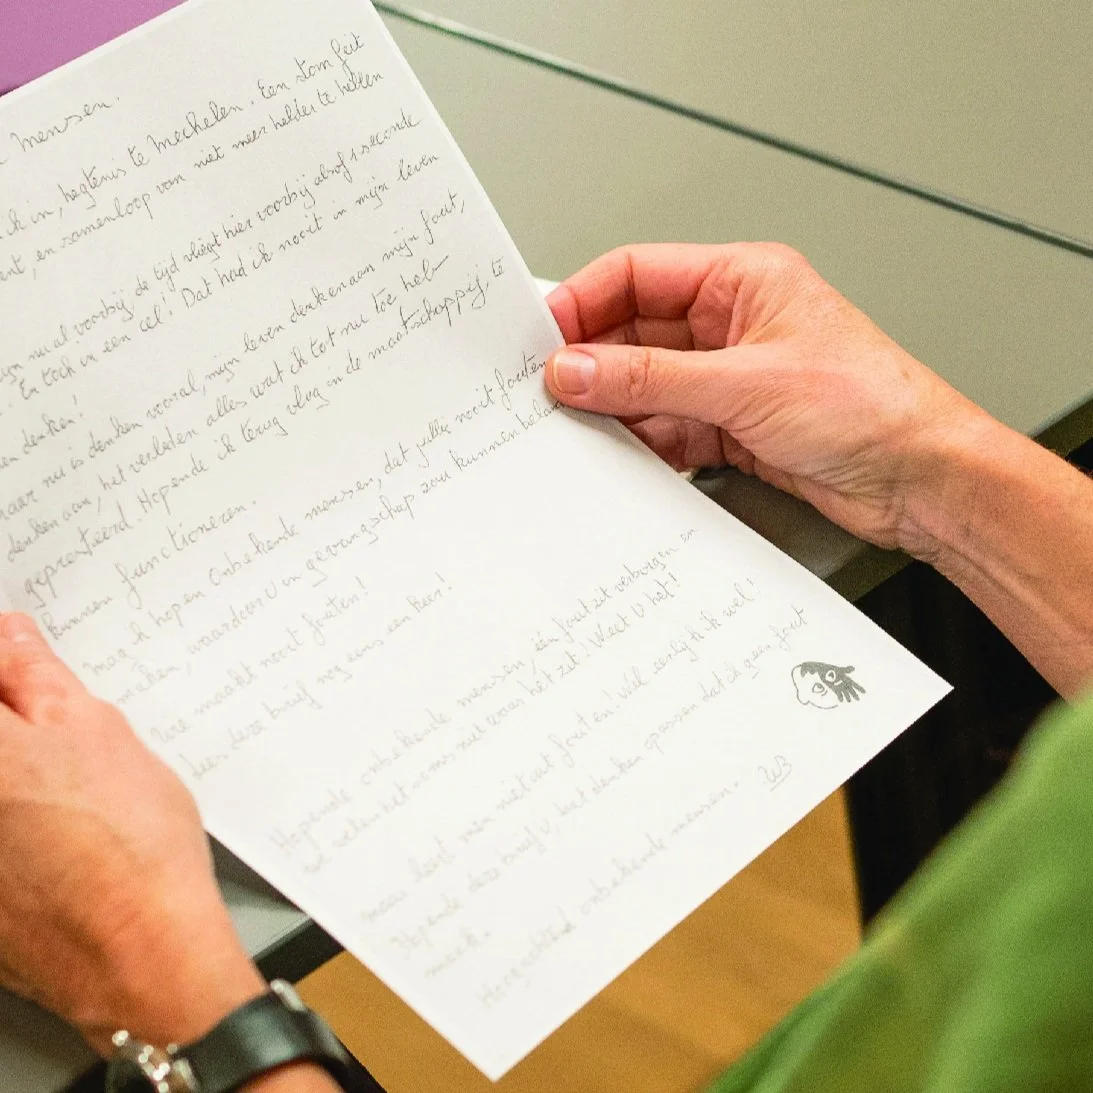 mensen.
ik in, hegtenis te Mechelen. Een stom feit
en samenloop van niet meer helder te hebben
nu al voorbij, de tijd vliegt hier voorbij alsof 1 seconde
En toch in een cel! Dat had ik nooit in mijn leven
denken!
maar nu is denken vooral, mijn leven denken aan mijn fout,
denken aan, het verleden alles wat ik tot nu toe heb
gepresteerd. Hopende ik terug vlug in de maatschappij, te
kunnen functioneren.
maar ik hopen onbekende mensen, dat jullie nooit fouten
maken, waardoor U in gevangschap zou kunnen
maakt nooit fouten!
lees deze brief nog eens een keer!
Hopende onbekende mensen, één fout zit verborgen en
we weten het soms niet waar hét zit! Weet U hét!
maar leest men niet uit fouten! Wél eerlijk ik wel!
Hopende deze brief U, laat denken opassen dat ik geen fout
maak.
Hoogachtend onbekende mensen. WB